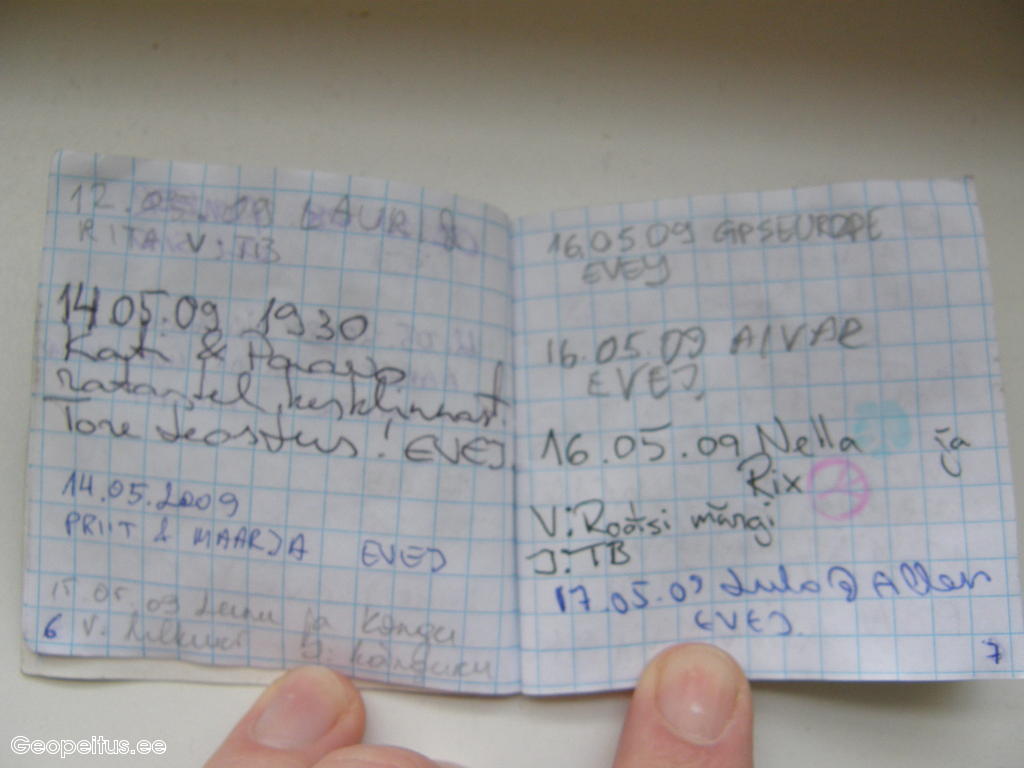 12.05.09 LAURI &
RITA V: TB
14.05.09 1930
Kati &
ratastel kesklinnast!
Tore teostus! EVEJ
14.05.2009
PRIIT & MAARJA EVEJ
15.05.09 ja
V: J:
6
16.05.09 GPSEUROPE
EVEJ
16.05.09 AIVAR
EVEJ
16.05.09 Nella ja
Rix
V: Rootsi märgi
J: TB
17.05.09 Lulo & Allan
EVEJ.
7
Geopeitus.ee